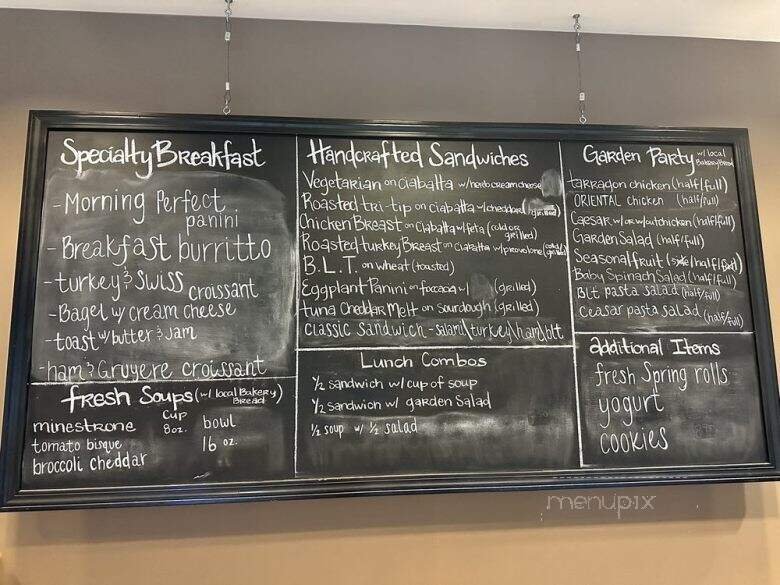 Specialty Breakfast
-Morning Perfect
panini
-Breakfast burritto
-turkey & Swiss croissant
-Bagel w/ cream cheese
-toast w/butter & Jam
-ham & Gruyere croissant
fresh Soups (w/ local Bakery Bread)
cup bowl
8oz. 16 oz.
minestrone
tomato bisque
broccoli cheddar
Handcrafted Sandwiches
Vegetarian on Ciabatta w/herb cream cheese
Roasted tri-tip on ciabatta w/cheddar (grilled)
Chicken Breast on Ciabatta w/feta (cold or grilled)
Roasted turkey Breast on Ciabatta w/provolone
B.L.T. on wheat (toasted)
Eggplant Panini on foccacia w/ (grilled)
tuna Cheddar Melt on Sourdough (grilled)
classic Sandwich - salami\turkey\ham\blt
Lunch Combos
1/2 sandwich w/ cup of soup
1/2 sandwich w/ garden Salad
1/2 soup w/ 1/2 salad
Garden Party w/ local Bakery Bread
tarragon chicken (half/full)
ORIENTAL chicken (half/full)
Caesar w/ or w/out chicken (half/full)
Garden Salad (half/full)
Seasonal fruit (half/full)
Baby Spinach Salad (half/full)
BLt pasta salad (half/full)
Ceasar pasta salad (half/full)
additional Items
fresh Spring rolls
yogurt
cookies
menupix